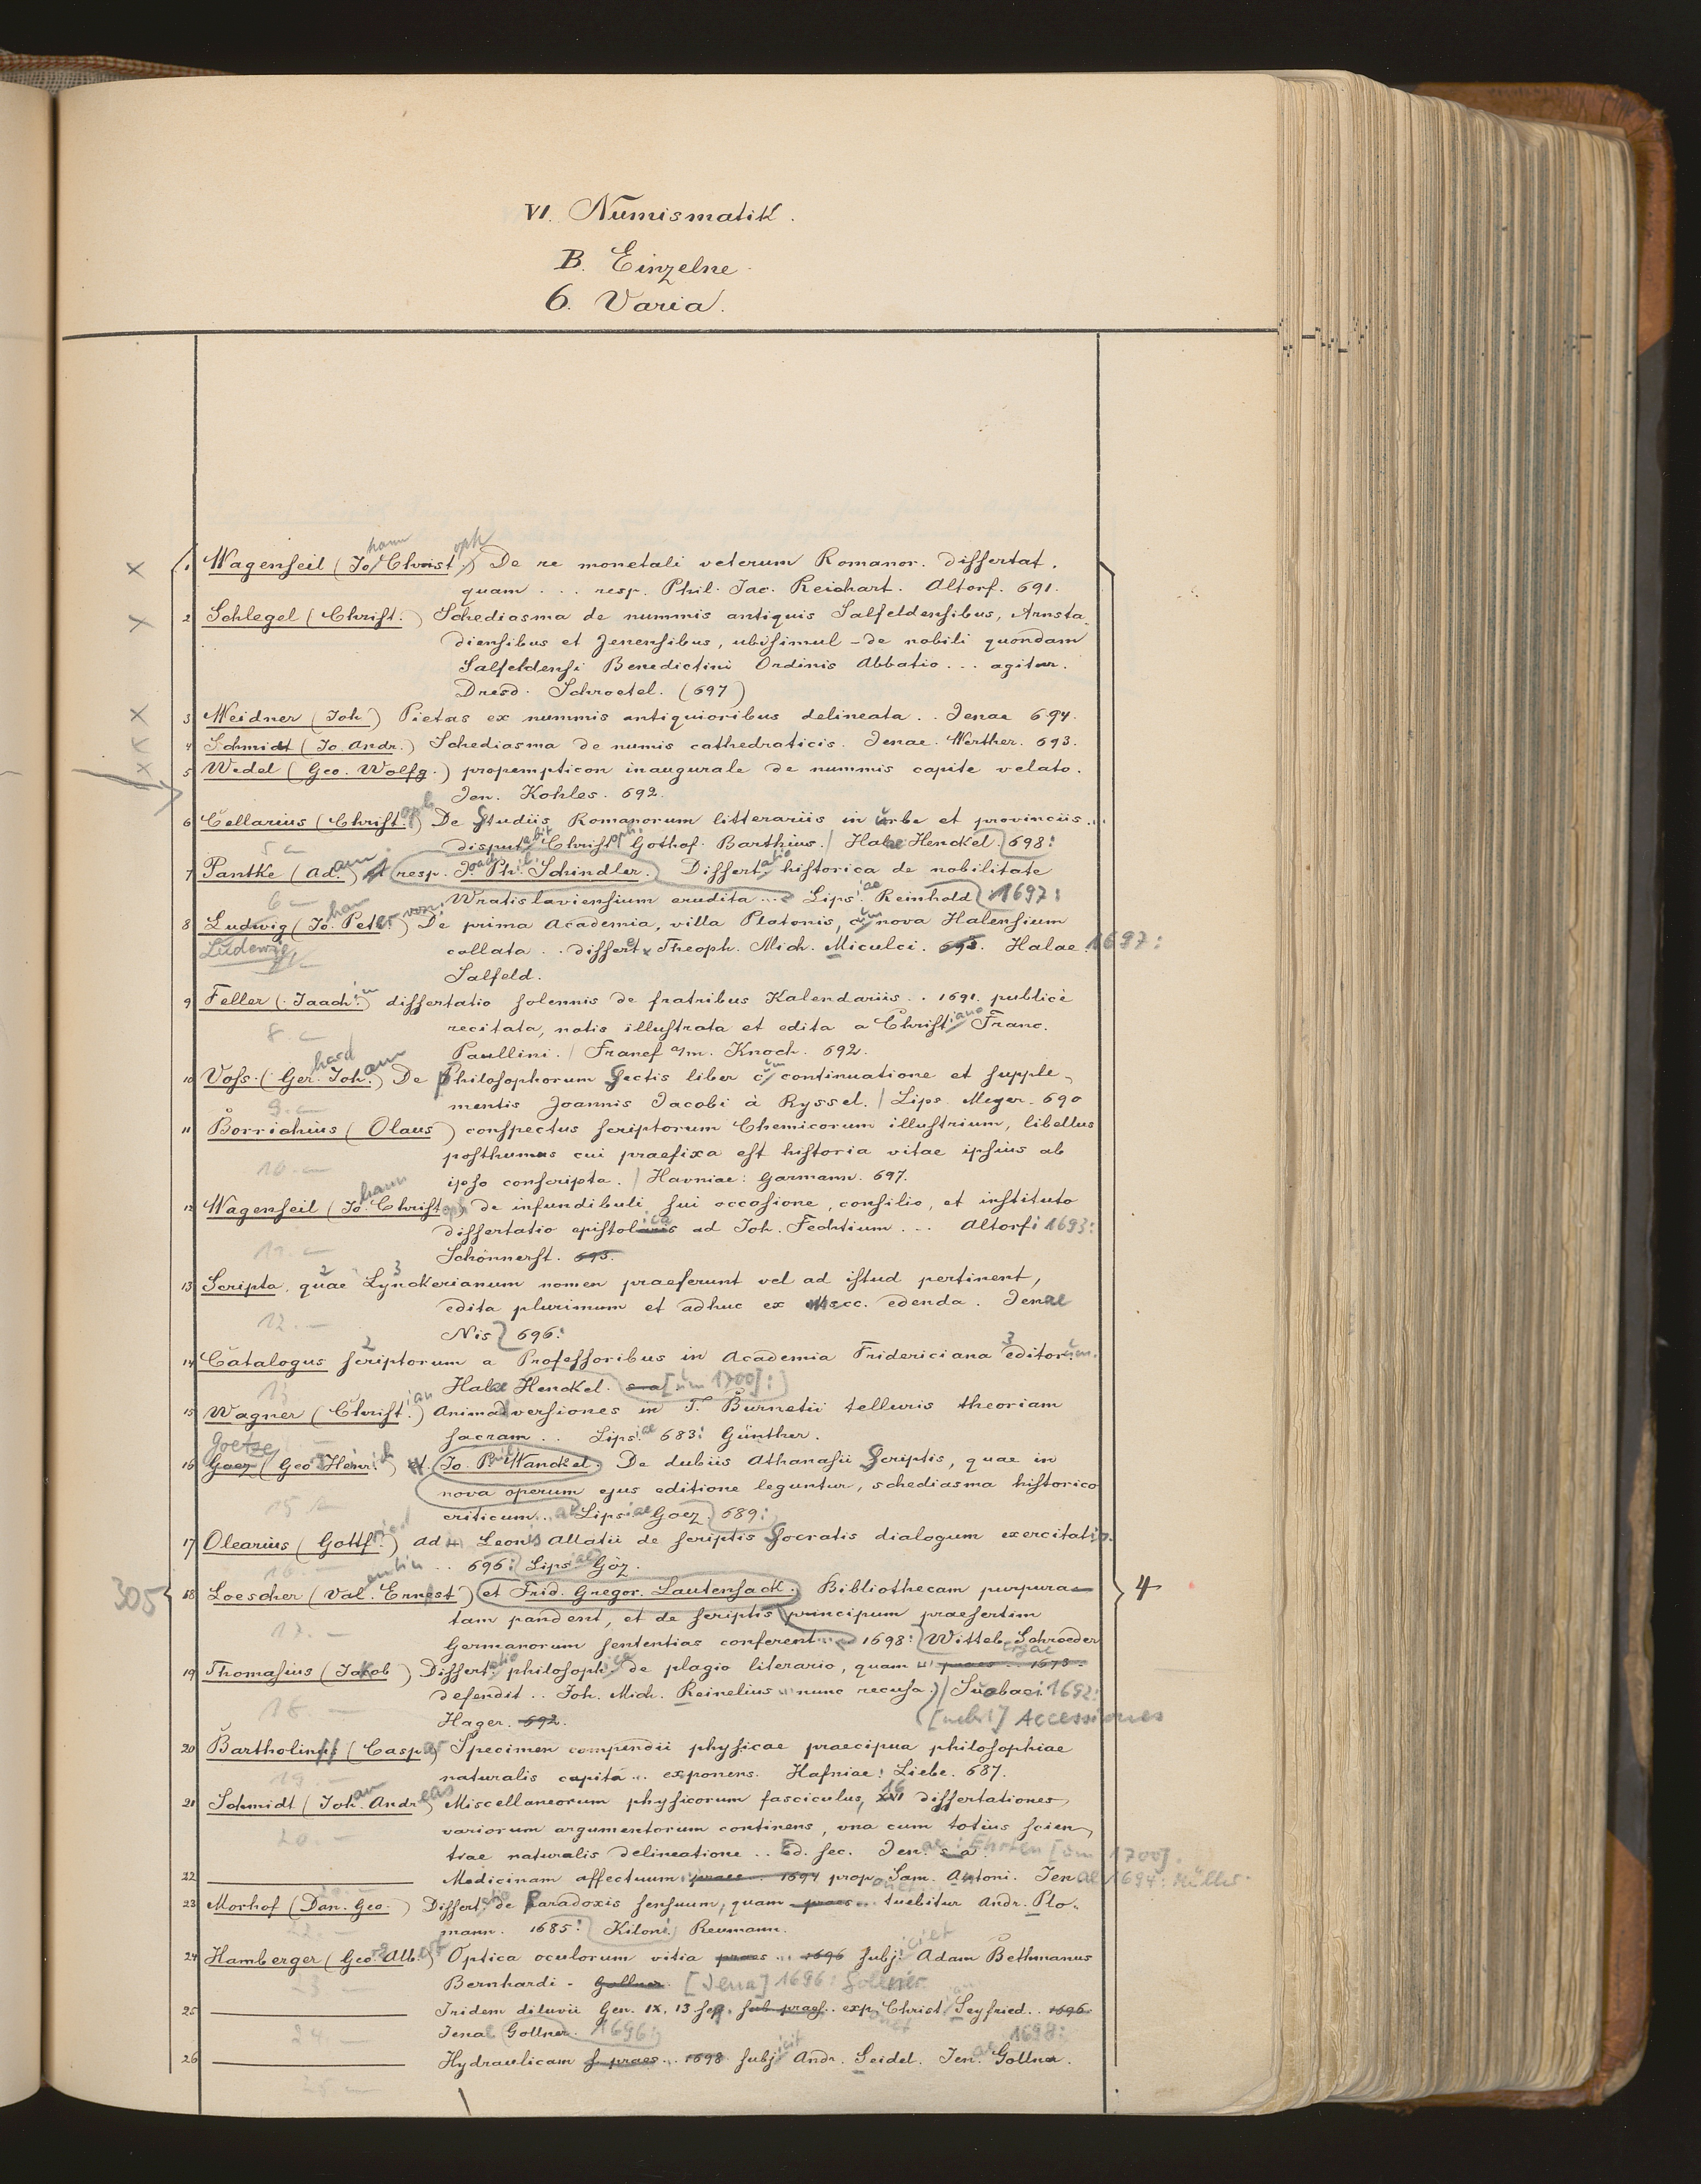 VI. Numismatik.
B. Einzelne.
6. Varia.
1 Wagenseil (Johann Christoph) De re monetali veterum Romanor. dissertat.
quam ... resp. Phil. Jac. Reichart. Altorf. 691.
2 Schlegel (Christ.) Schediasma de nummis antiquis Salfeldensibus, Arnsta-
diensibus et Jenensibus, ubi simul - de nobili quondam
Salfeldensi Benedictini Ordinis Abbatio ... agitur.
Dresd. Schroetel. (697)
3 Weidner (Joh) Pietas ex nummis antiquioribus delineata .. Jenae 694.
4 Schmidt (Jo. Andr.) Schediasma de numis cathedraticis. Jenae. Werther. 693.
5 Wedel (Geo. Wolfg.) propempticon inaugurale de nummis capite velato.
Jen. Kohles. 692.
6 Cellarius (Christoph) De Studiis Romanorum litterariis in urbe et provinciis...
disputabit Christoph. Gothof. Barthius. / Halae Henckel. 698:
5
7 Pantke (Adam) et resp. Joach Phil. Schindler. Dissertatio historica de nobilitate
Wratislaviensium erudita ... Lipsiae Reinhold 1697:
6
8 Ludwig (Johan Peter von) De prima Academia, villa Platonis, cum nova Halensium
Ludewig
collata .. dissert Theoph. Mich. Miculci. 698. Halae. 1697:
Salfeld.
9 Feller (Joachim) dissertatio solennis de fratribus Kalendariis .. 1691. publicè
recitata, notis illustrata et edita a Christiano Franc.
8.
Paullini. / Francf a/m. Knoch. 692.
10 Voss. (Gerhard Johann) De Philosophorum Sectis liber cum continuatione et supple-
mentis Joannis Jacobi à Ryssel. / Lips. Meyer. 690
9.
11 Borrichius (Olaus) conspectus scriptorum Chemicorum illustrium, libellus
posthumus cui praefixa est historia vitae ipsius ab
10.
ipso conscripta. / Havniae: Garmann. 697.
12 Wagenseil (Johann Christoph de infundibuli sui occasione, consilio, et instituto
dissertatio epistolica ad Joh. Fechtium ... Altorfi 1693:
11.
Schönnerst. 693.
13 Scripta, quae Lynckerianum nomen praeferunt vel ad istud pertinent,
edita plurimum et adhuc ex Mscc. edenda. Jenae
12.
Nis 696:
14 Catalogus scriptorum a Professoribus in Academia Fridericiana editorum.
Halae Henckel. s a [um 1700]:
13
15 Wagner (Christian) Animadversiones in T. Burnetii telluris theoriam
sacram .. Lipsiae 683: Günther.
Goetze
16 Goez (Geo Heinrich) et. Jo. Phil Wanckel. De dubiis Athanasii Scriptis, quae in
nova operum ejus editione leguntur, schediasma historico
15
criticum... Lipsiae Goez. 689:
17 Olearius (Gottfried) ad Leonis Allatii de scriptis Socratis dialogum exercitatio.
16. .. 696: Lipsiae Göz.
305 18 Loescher (Valentin Ernest) et Frid. Gregor. Lautensack. Bibliothecam purpura- 4
tam pandent, et de scriptis principum praesertim
17.
Germanorum sententias conferent... 1698: Witteb. Schroeder
19 Thomasius (Jakob) Dissertatio philosophica de plagio literario, quam praes .. 1673.
defendit .. Joh. Mich. Reinelius nunc recusa.) / Suobaci. 1692:
18.
Hager. 692. [nebst] Accessiones
20 Bartholin (Caspar) Specimen compendii physicae praecipua philosophiae
naturalis capita ... exponens. Hafniae: Liebe. 687.
19.
21 Schmidt (Johan Andreas) Miscellaneorum physicorum fasciculus, 16 dissertationes
variorum argumentorum continens, una cum totius scien-
20.
tiae naturalis delineatione .. Ed. sec. Jenae: s a. [um 1700].
22 Medicinam affectuum praes .. 1694 proponet Sam. Antoni. Jenae 1694: Müller.
23 Morhof (Dan. Geo.) Dissertatio de Paradoxis sensuum, quam praes ... tuebitur Andr. Plo-
22.
mann. 1685: Kiloni. Reumann.
24 Hamberger (Georg Albert) Optica oculorum vitia praes ... 1696 subjiciet Adam Bethmanus
Bernhardi - Gollner. [Jena] 1696: Gollner.
25 Iridem diluvii Gen. IX. 13 seq. sub praes. .. exponet Christ. Seyfried .. 1696.
Jenae Gollner. 1696:
24. 1698:
26 Hydraulicam s. praes ... 1698 subjicit Andr. Seidel. Jenae Gollner.
25.